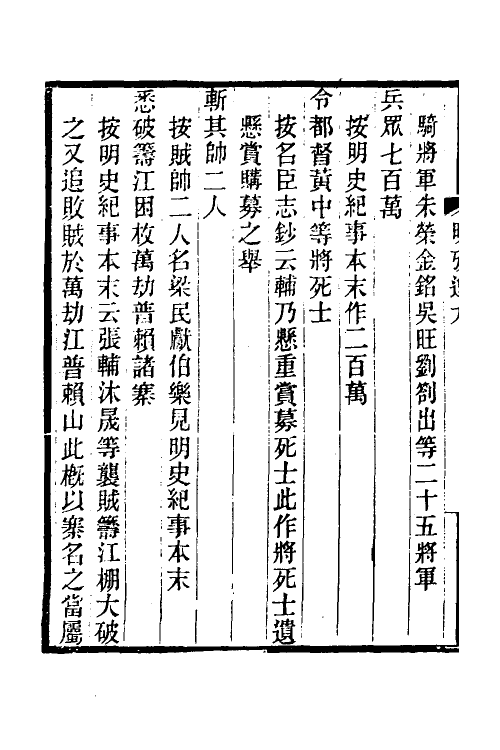 騎將軍朱榮金銘吳旺劉劄出等二十五將軍
兵眾七百萬
按明史紀事本末作二百萬
令都督黃中等將死士
按名臣志鈔云輔乃懸重賞募死士此作將死士遺
懸賞購募之舉
斬其帥二人
按賊帥二人名梁民獻伯樂見明史紀事本末
悉破籌江困枚萬劫普賴諸寨
按明史紀事本末云張輔沐晟等襲賊籌江柵大破
之又追敗賊於萬劫江普賴山此概以寨名之當屬